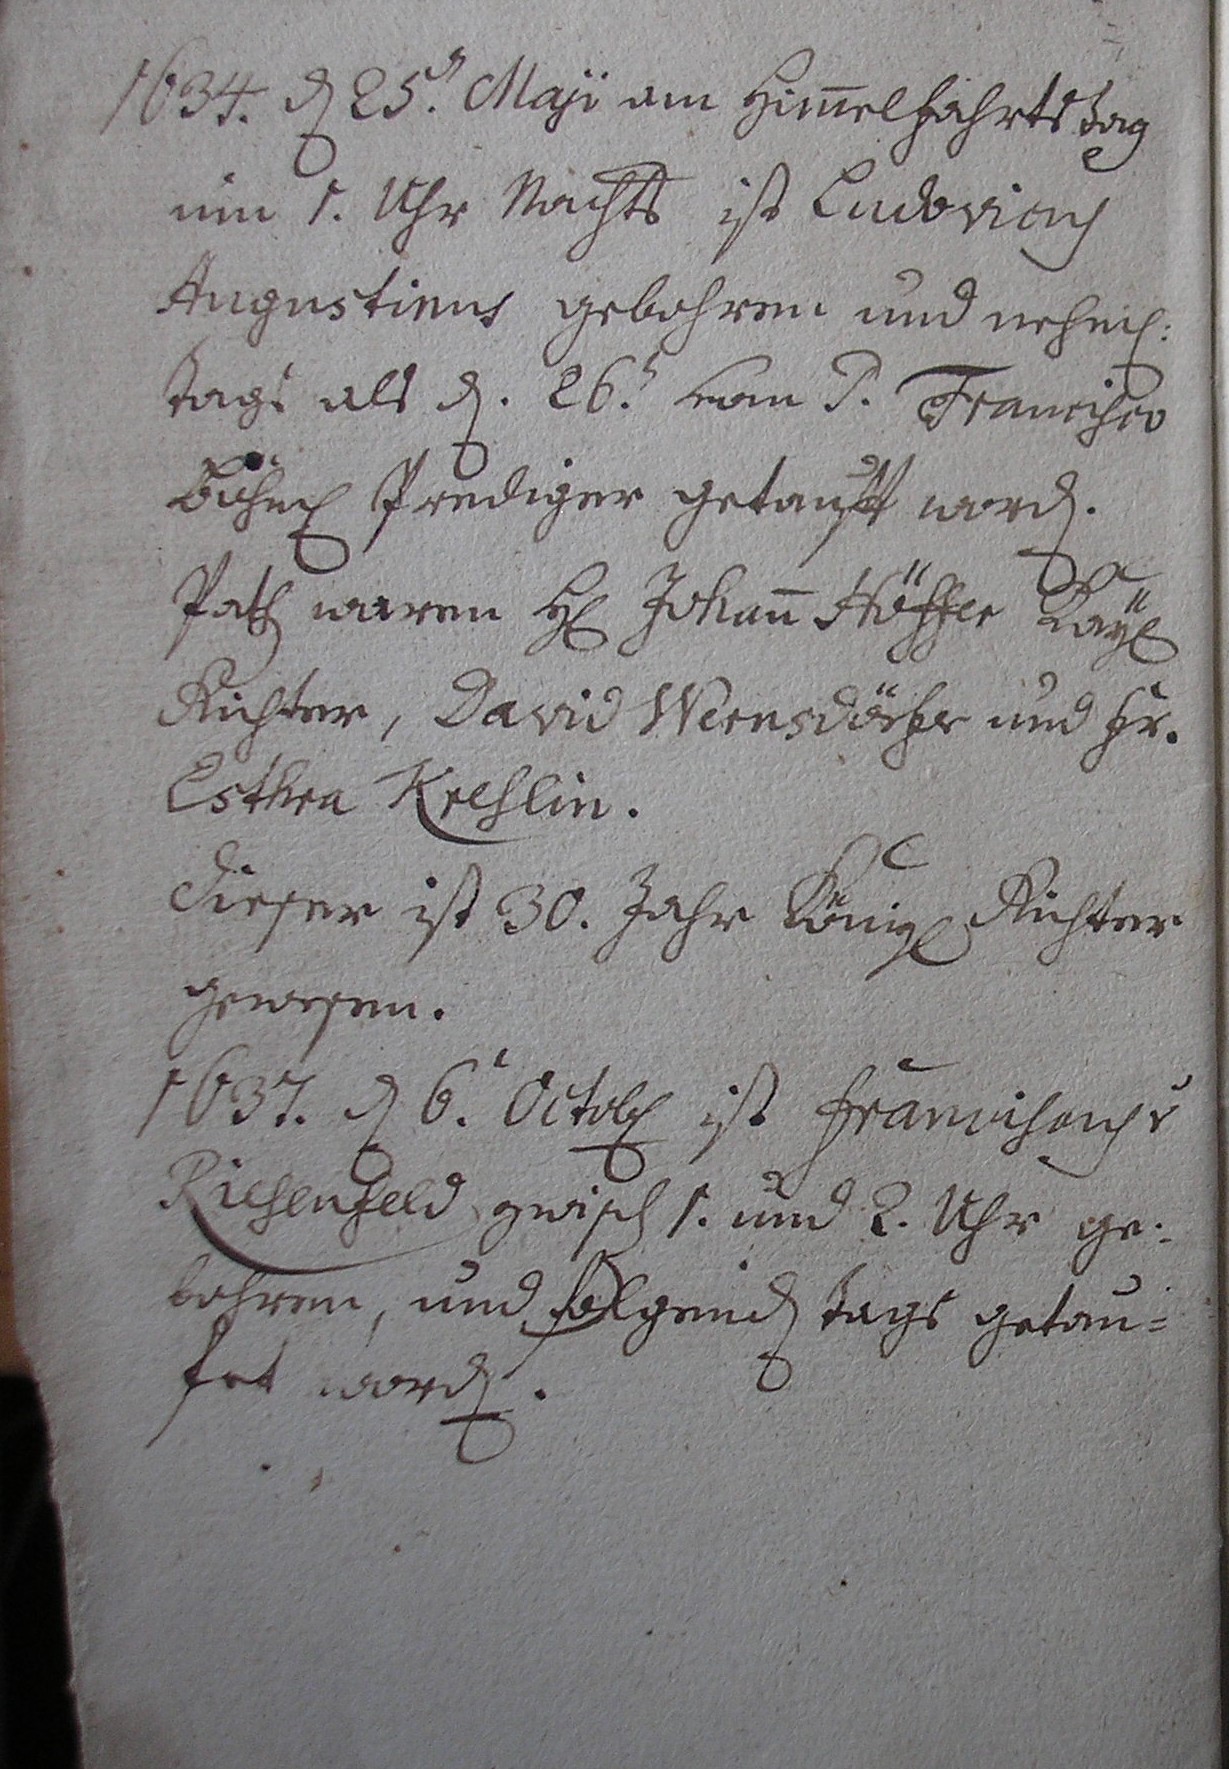 1634. d 25.t Maji am Himmelfahrts Tag
um 1. Uhr Nachts ist Ludovicus
Augustinus gebohren und nehml:
tags als d. 26.t vom P. Francisco
Böhml Prediger getaufft word.
Path waren H Johann Höffer Kayl
Richter, David Wernsdörfer und Fr.
Esther
dieser ist 30. Jahr Königl Richter
gewesen.
1637. d 6.t Octob ist Franciscus
Riesenfeld zwisch 1. und 2. Uhr ge-
bohren, und folgend tags getau=
fet word.